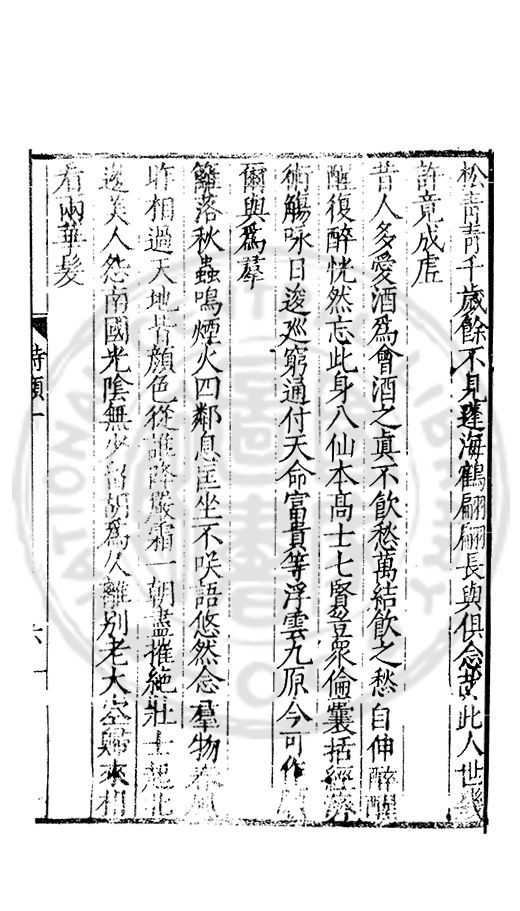 松青青千歲餘不見蓬海鶴翩翩長與俱念此人世幾
許竟成虛
昔人多愛酒為會酒之真不飲愁萬結飲之愁自伸醉醒
醒復醉恍然忘此身八仙本高士七賢豈眾倫囊括經濟
術觴咏日逡巡窮通付天命富貴等浮雲九原今可作
爾與為羣
籬落秋蟲鳴煙火四鄰息匡坐不咲語悠然念羣物
昨相過天地昔顏色從誰降嚴霜一朝盡摧絕壯士起北
邊美人怨南國光陰無少留胡為久離別老大空歸來相
看兩華髮
詩類一
六